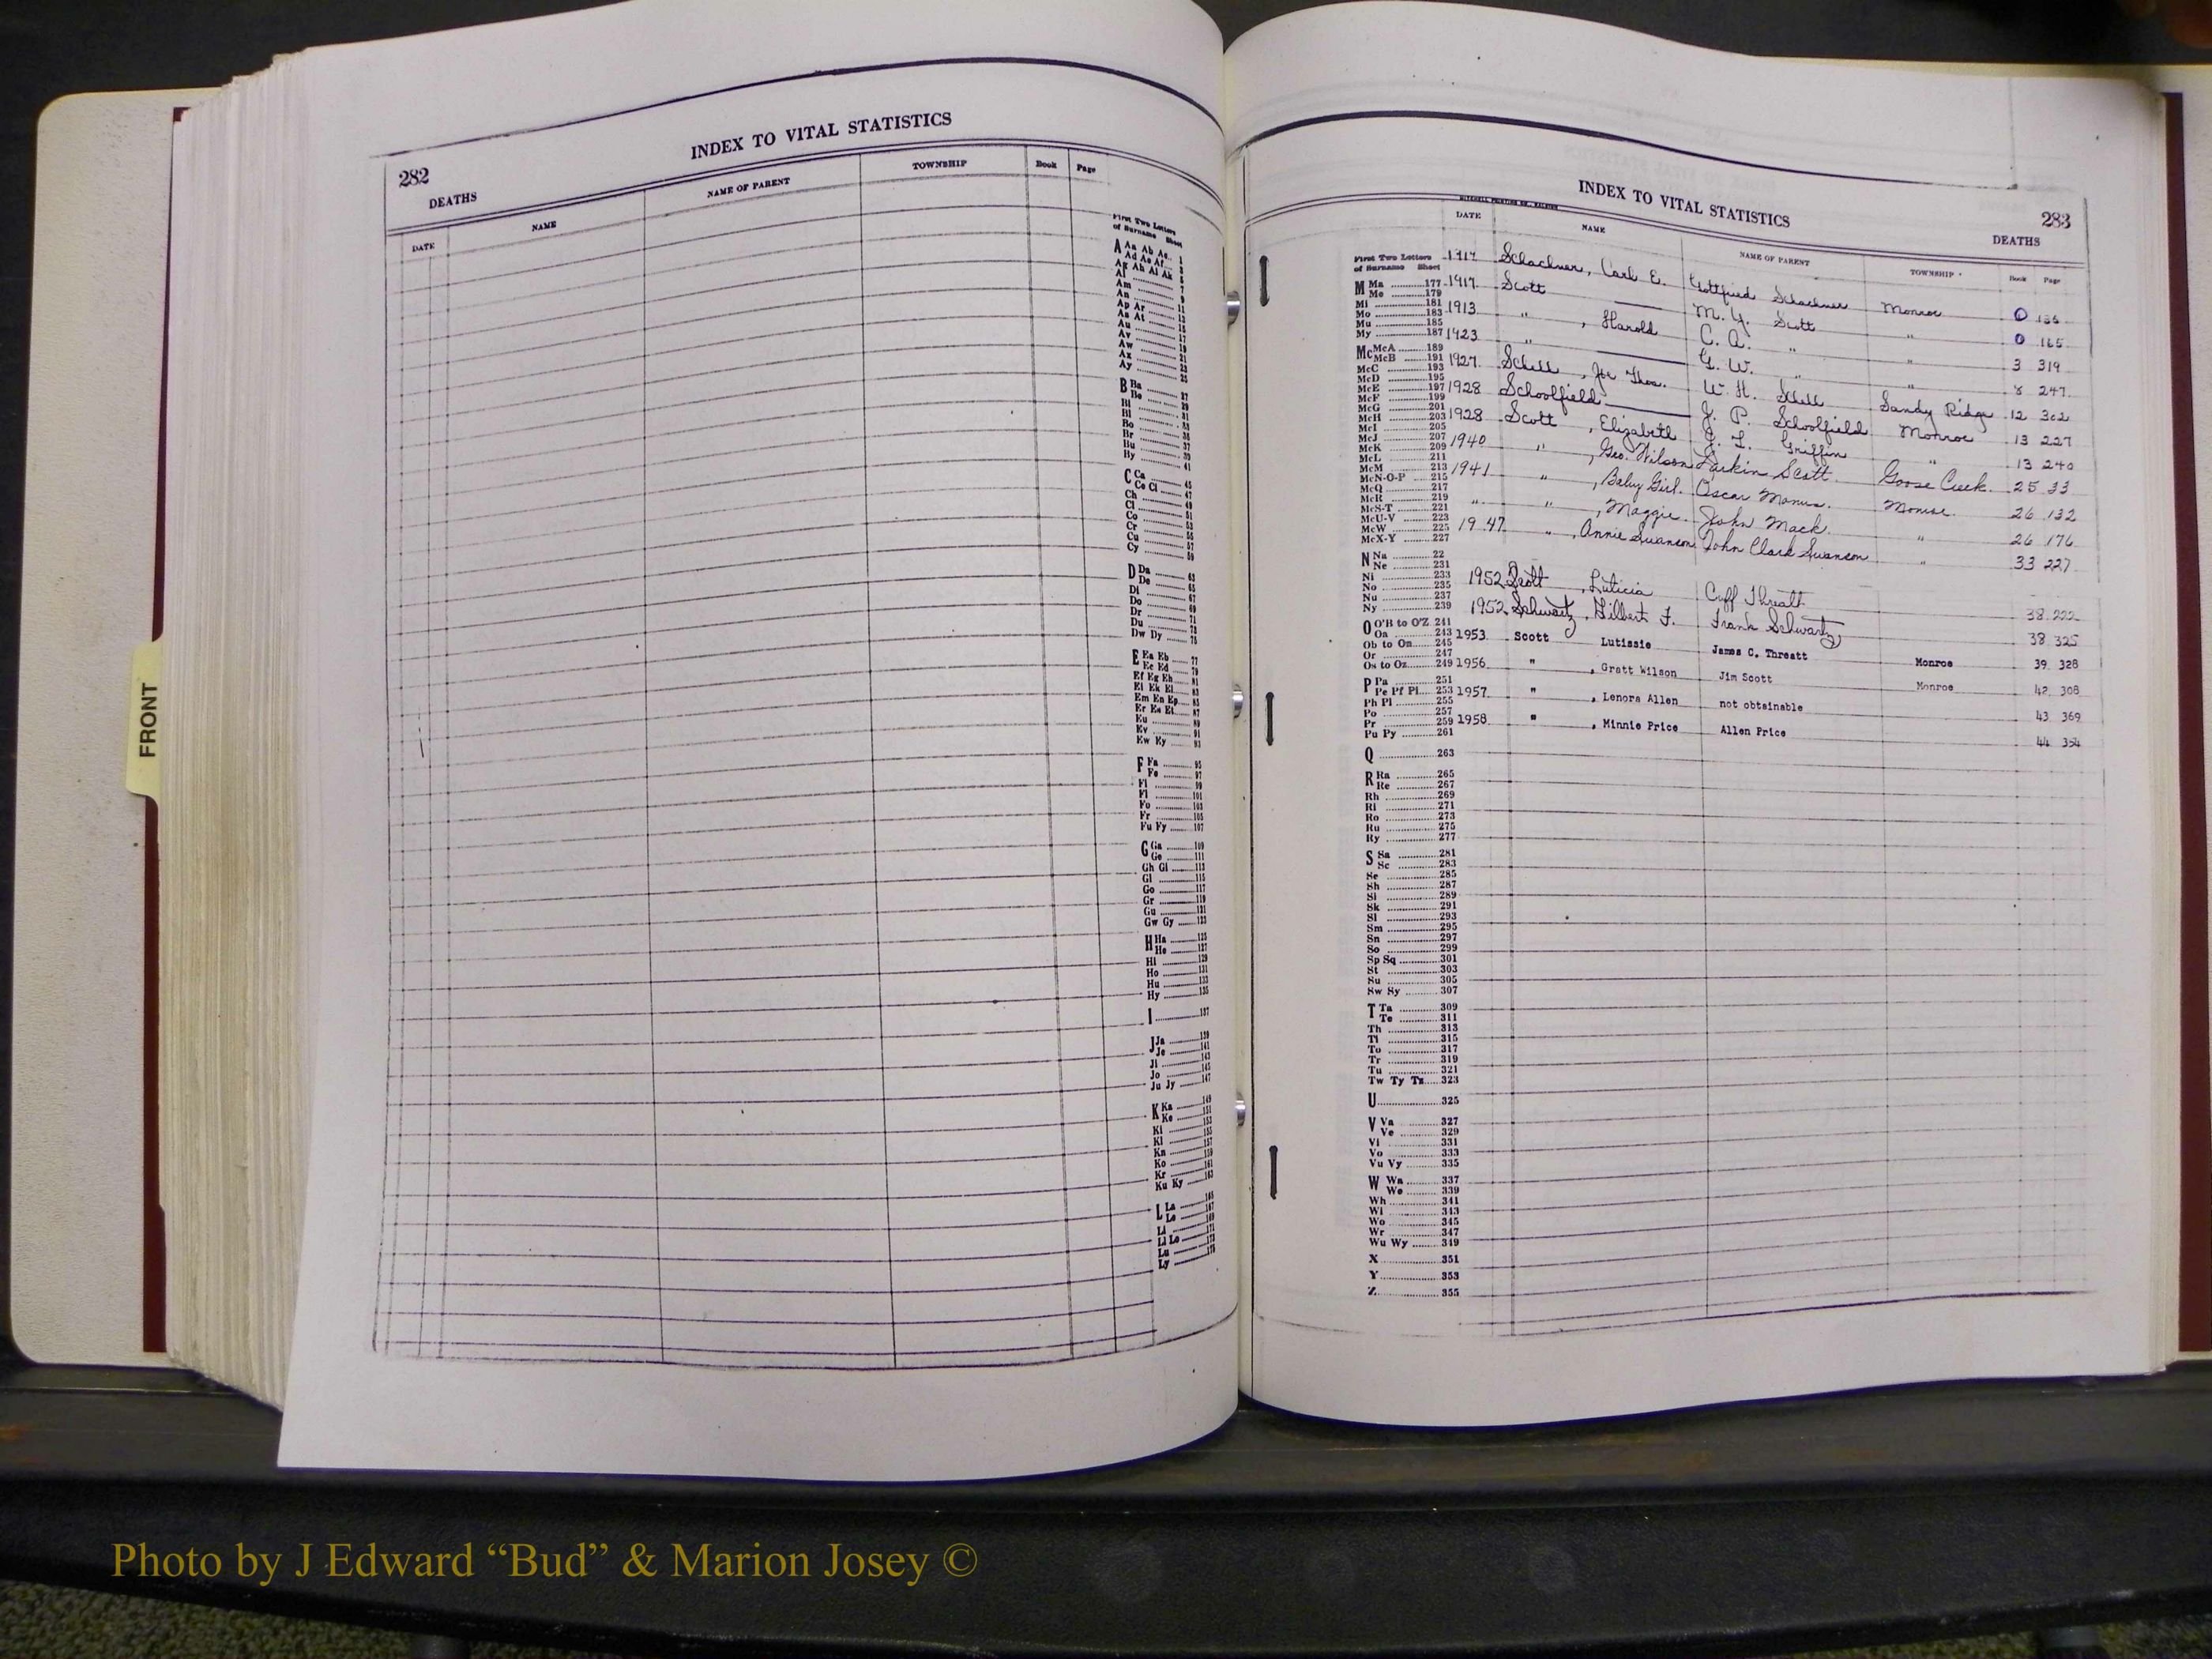 282
INDEX TO VITAL STATISTICS
DEATHS
DATE NAME NAME OF PARENT TOWNSHIP Book Page
First Two Letters
of Surname Sheet
A Aa Ab Ac
Ad Ae Af
Ag Ah Ai Ak
Al
Am
An
Ap Ar
As At
Au
Av
Aw
Ax
Ay
B Ba
Be
Bi
Bl
Bo
Br
Bu
By
C Ca
Ce Ci
Ch
Cl
Co
Cr
Cu
Cy
D Da
De
Di
Do
Dr
Du
Dw Dy
E Ea Eb
Ec Ed
Ef Eg Eh
Ei Ek El
Em En Ep
Er Es Et
Eu
Ev
Ew Ey
F Fa
Fe
Fi
Fl
Fo
Fr
Fu Fy
G Ga 109
Ge 111
Gh Gi 113
Gl 115
Go 117
Gr 119
Gu 121
Gw Gy 123
H Ha 125
He 127
Hi 129
Ho 131
Hu 133
Hy 135
I 137
J Ja 139
Je 141
Ji 143
Jo 145
Ju Jy 147
K Ka 149
Ke 151
Ki
Kl
Kn
Ko
Kr
Ku Ky
L La
Le
Li
Ll Lo
Lu
Ly
FRONT
INDEX TO VITAL STATISTICS
283
DEATHS
DATE NAME NAME OF PARENT TOWNSHIP Book Page
1917 Schachner, Carl E. Gottfried Schachner Monroe 0 136
1917 Scott M. Y. Scott " 0 165
1913 " , Harold C. A. " " 3 319
1923 " G. W. " " 8 247
1927 Schell, Jte Thos. W. H. Shell Sandy Ridge 12 302
1928 Schoolfield J. P. Schoolfield Monroe 13 227
1928 Scott , Elizabeth J. L. Griffin " 13 240
1940 " , Geo. Wilson Larkin Scott Goose Creek 25 33
1941 " , Baby Girl Oscar Manus Monroe 26 132
" " , Maggie John Mack " 26 176
1947 " , Annie Swanson John Clark Swanson " 33 227
1952 Scott , Luticia Cuff Threatt 38 222
1952 Schwartz, Gilbert F. Frank Schwartz 38 325
1953 Scott Lutissie James C. Threatt Monroe 39 328
1956 " , Gratt Wilson Jim Scott Monroe 42 308
1957 " , Lenora Allen not obtainable 43 369
1958 " , Minnie Price Allen Price 44 354
First Two Letters
of Surname Sheet
M Ma 177
Me 179
Mi 181
Mo 183
Mu 185
My 187
Mc McA 189
McB 191
McC 193
McD 195
McE 197
McF 199
McG 201
McH 203
McI 205
McJ 207
McK 209
McL 211
McM 213
McN-O-P 215
McQ 217
McR 219
McS-T 221
McU-V 223
McW 225
McX-Y 227
N Na 22
Ne 231
Ni 233
No 235
Nu 237
Ny 239
O O'B to O'Z 241
Oa 243
Ob to On 245
Or 247
Os to Oz 249
P Pa 251
Pe Pf Pi 253
Ph Pl 255
Po 257
Pr 259
Pu Py 261
Q 263
R Ra 265
Re 267
Rh 269
Ri 271
Ro 273
Ru 275
Ry 277
S Sa 281
Sc 283
Se 285
Sh 287
Si 289
Sk 291
Sl 293
Sm 295
Sn 297
So 299
Sp Sq 301
St 303
Su 305
Sw Sy 307
T Ta 309
Te 311
Th 313
Ti 315
To 317
Tr 319
Tu 321
Tw Ty Tz 323
U 325
V Va 327
Ve 329
Vi 331
Vo 333
Vu Vy 335
W Wa 337
We 339
Wh 341
Wi 343
Wo 345
Wr 347
Wu Wy 349
X 351
Y 353
Z 355
Photo by J Edward “Bud” & Marion Josey ©